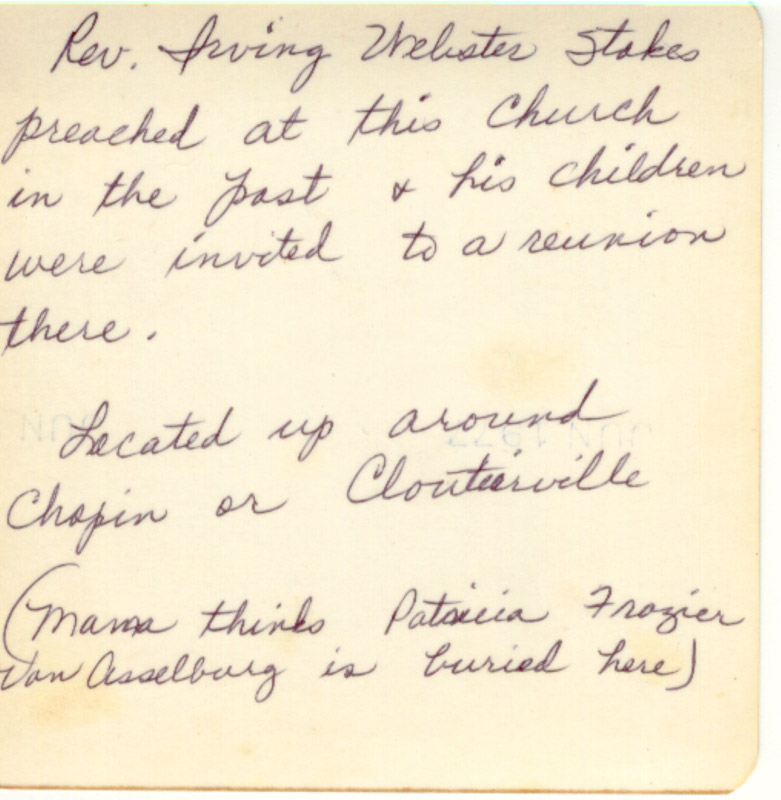 Rev. Irving Webster Stokes
preached at this Church
in the past & his children
were invited to a reunion
there.
Located up around
Chopin or Cloutierville
(Mama thinks Patricia Frazier
Van Asselburg is buried here)